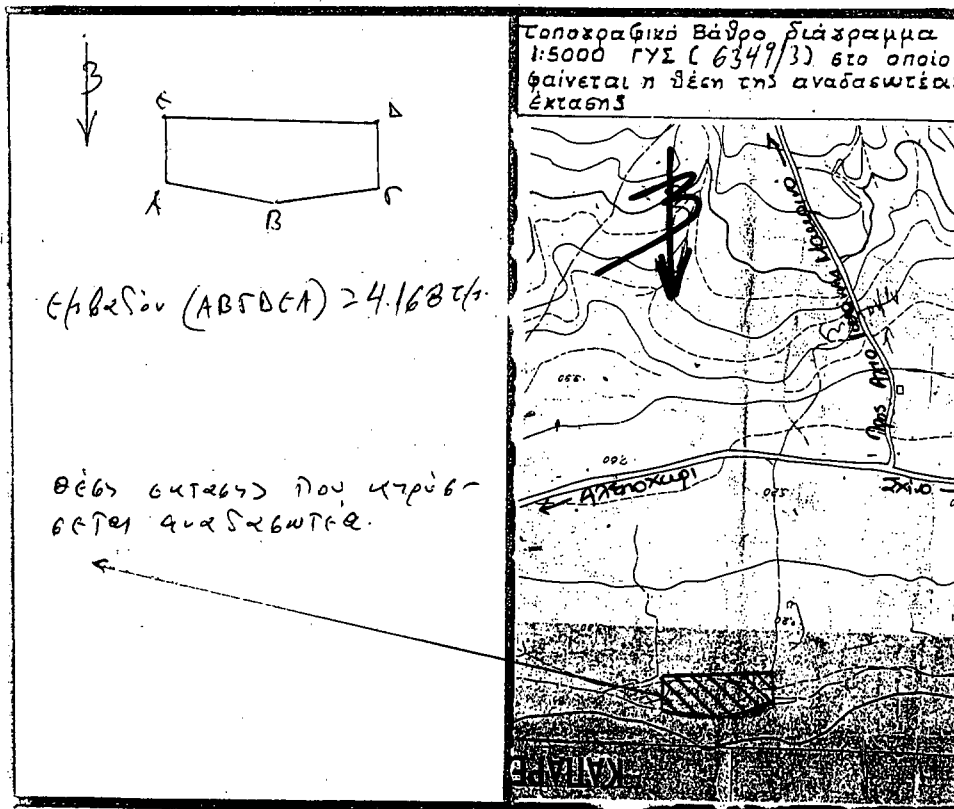 Β
Ε
Δ
Α
Β
Γ
Εμβαδόν (ΑΒΓΔΕΑ) = 4.168 τ.μ.
Θέση εκτάσης που κηρύσ-
σεται αναδασωτέα.
τοπογραφικό Βάθρο διάγραμμα
1:5000 ΓΥΣ (6349/3) στο οποίο
φαίνεται η θέση της αναδασωτέας
έκτασης
Β
Προς Άγιο
Αλεποχώρι
Σχίνο
ΚΑΠΑΡΕ